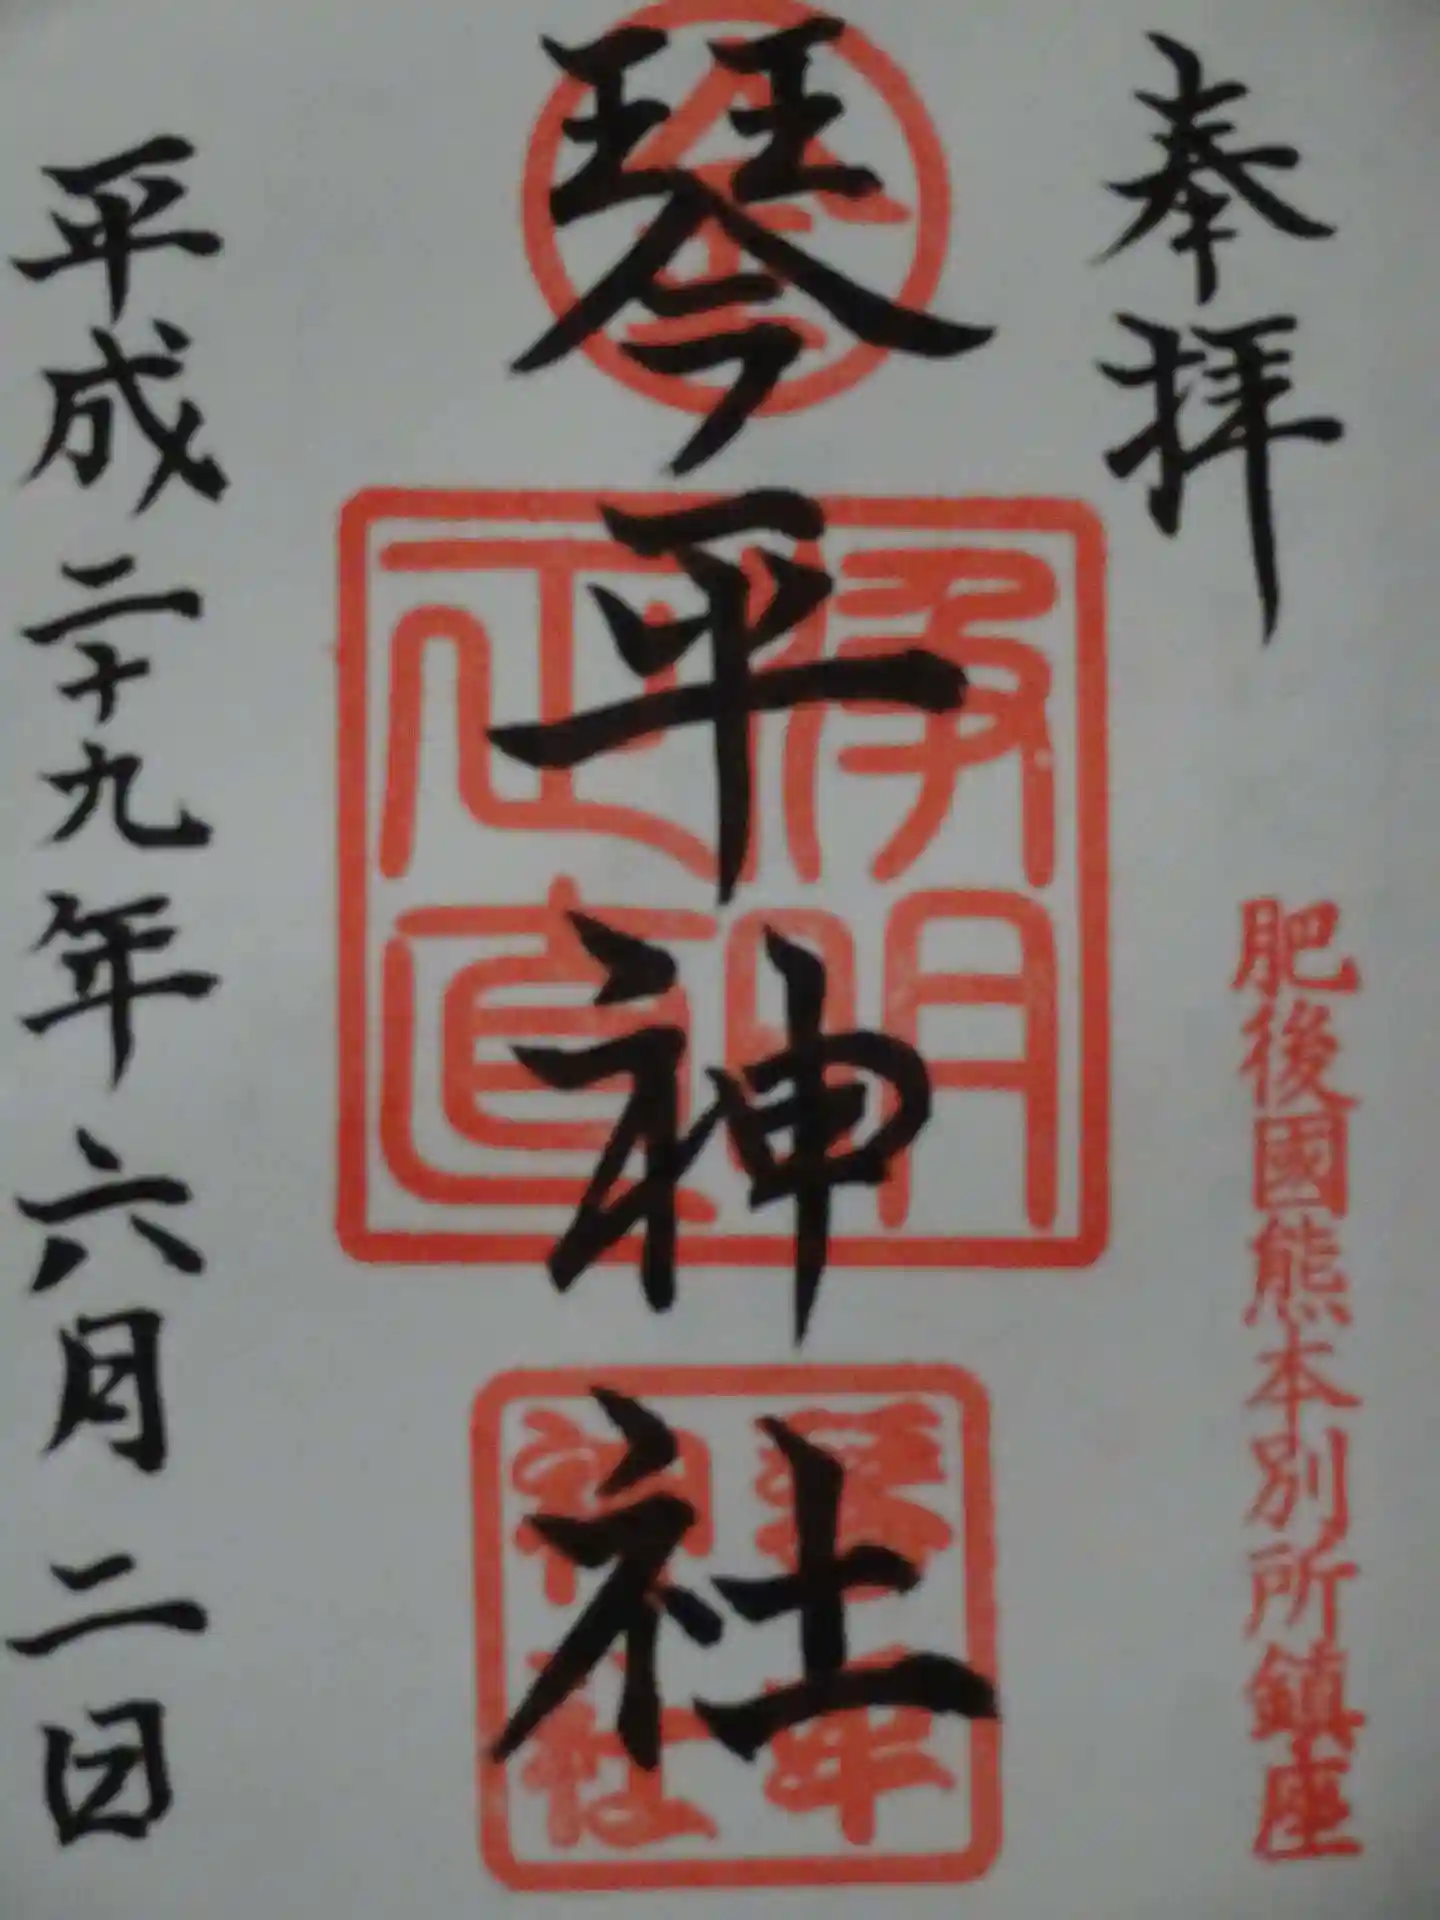 奉拝
肥後國熊本別所鎮座
金
琴平神社
浄明
正直
琴平
神社
平成二十九年六月二日